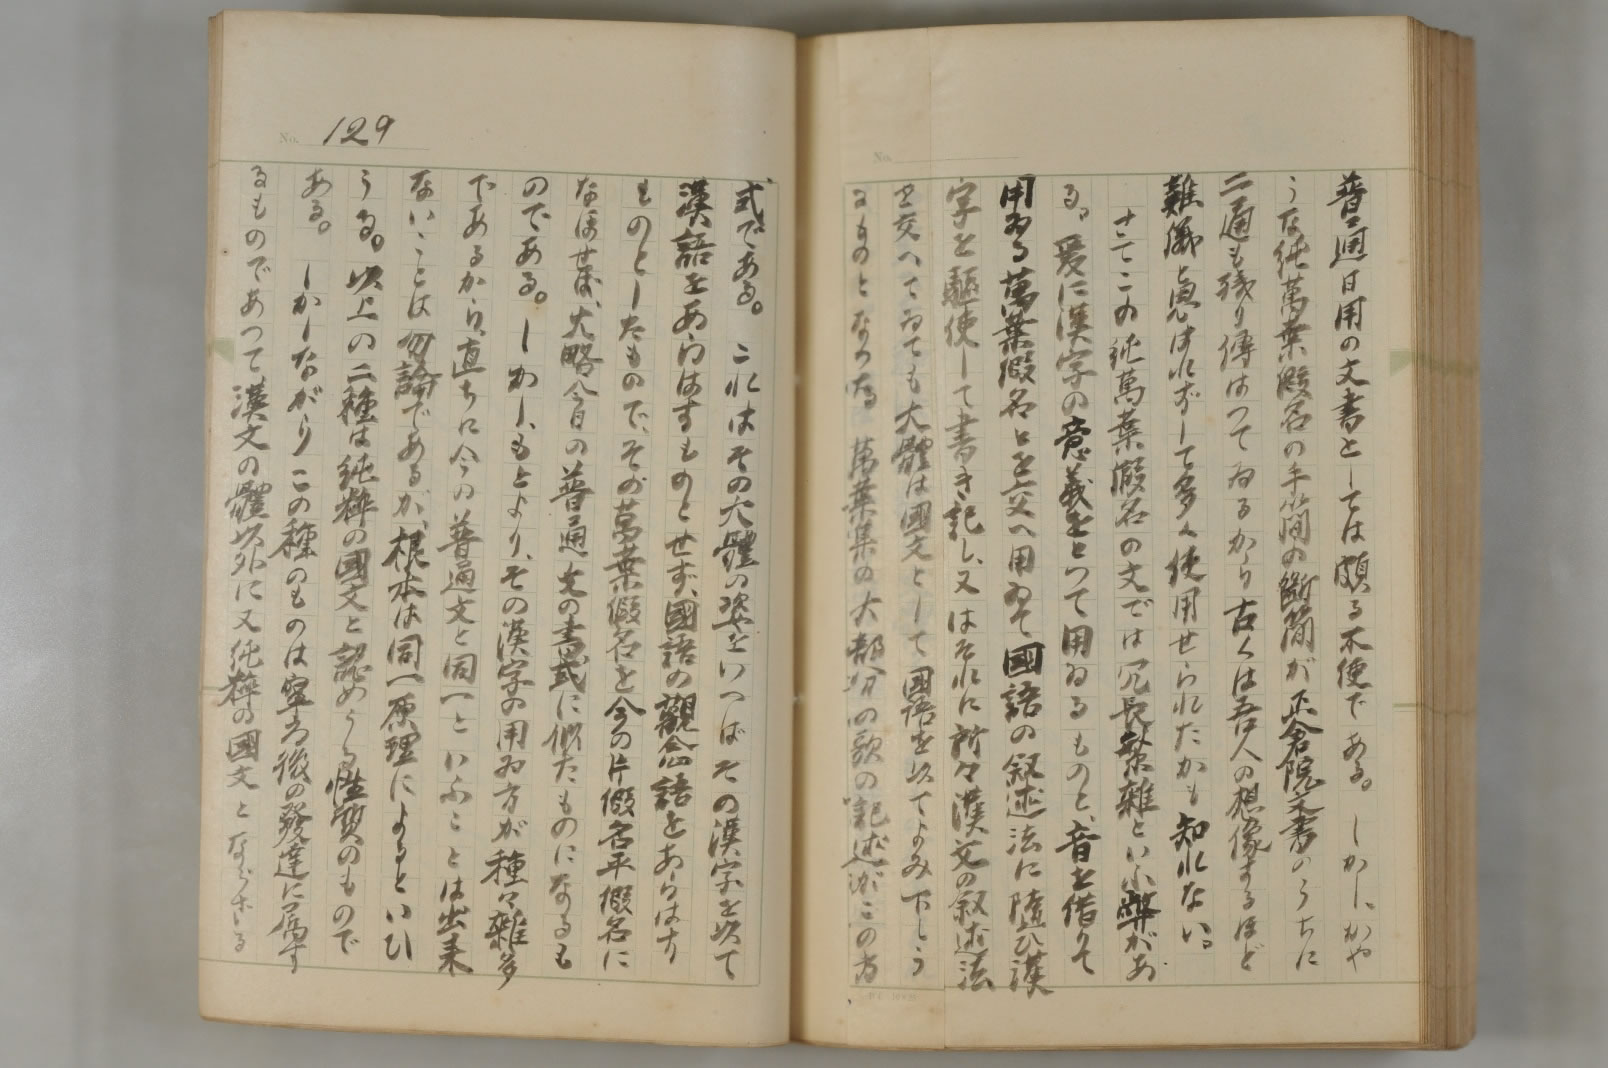 普通日用の文書としては頗る不便である。しかしかや
うな純萬葉假名の手簡の斷簡が正倉院文書のうちに
二通も殘り傳はつてゐるから古くは吾人の想像するほど
難儀と思はれずして多く使用せられたかも知れない。
さてこの純萬葉假名の文では冗長繁雜といふ弊があ
る。爰に漢字の意義をとつて用ゐるものと、音を借りて
用ゐる萬葉假名とを交へ用ゐて國語の叙述法に隨ひ漢
字を驅使して書き記し、又はそれに所々漢文の叙述法
を交へてゐても大體は國文として國語を以てよみ下しう
るものとなつた。萬葉集の大部分の歌の記述がこの方
No. 129
式である。これはその大體の姿をいつばその漢字を以て
漢語をあらはすものとせず、國語の觀念語をあらはす
ものとしたもので、その萬葉假名を今の片假名平假名に
なほせば、大略今日の普通文の書式に似たものになるも
のである。しかし、もとより、その漢字の用ゐ方が種々雜多
であるから、直ちに今の普通文と同一といふことは出來
ないことは勿論であるが、根本は同一原理によるといひ
うる。以上の二種は純粹の國文と認めうる性質のもので
ある。しかしながらこの種のものは寧ろ後の發達に屬す
るものであつて漢文の體以外に又純粹の國文となさざる
No.